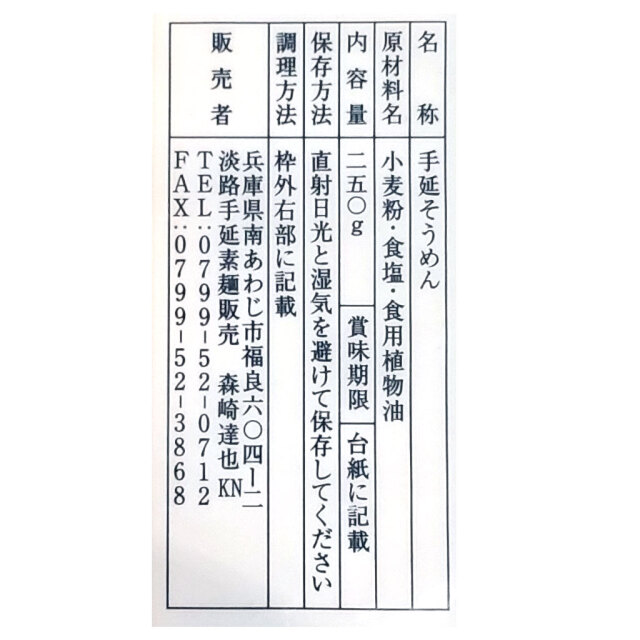 名称
手延そうめん
原材料名
小麦粉・食塩・食用植物油
内容量
二五〇g
賞味期限
台紙に記載
保存方法
直射日光と湿気を避けて保存してください
調理方法
枠外右部に記載
販売者
兵庫県南あわじ市福良六〇四ー二
淡路手延素麺販売 森崎達也KN
TEL:0799-52-0712
FAX:0799-52-3868